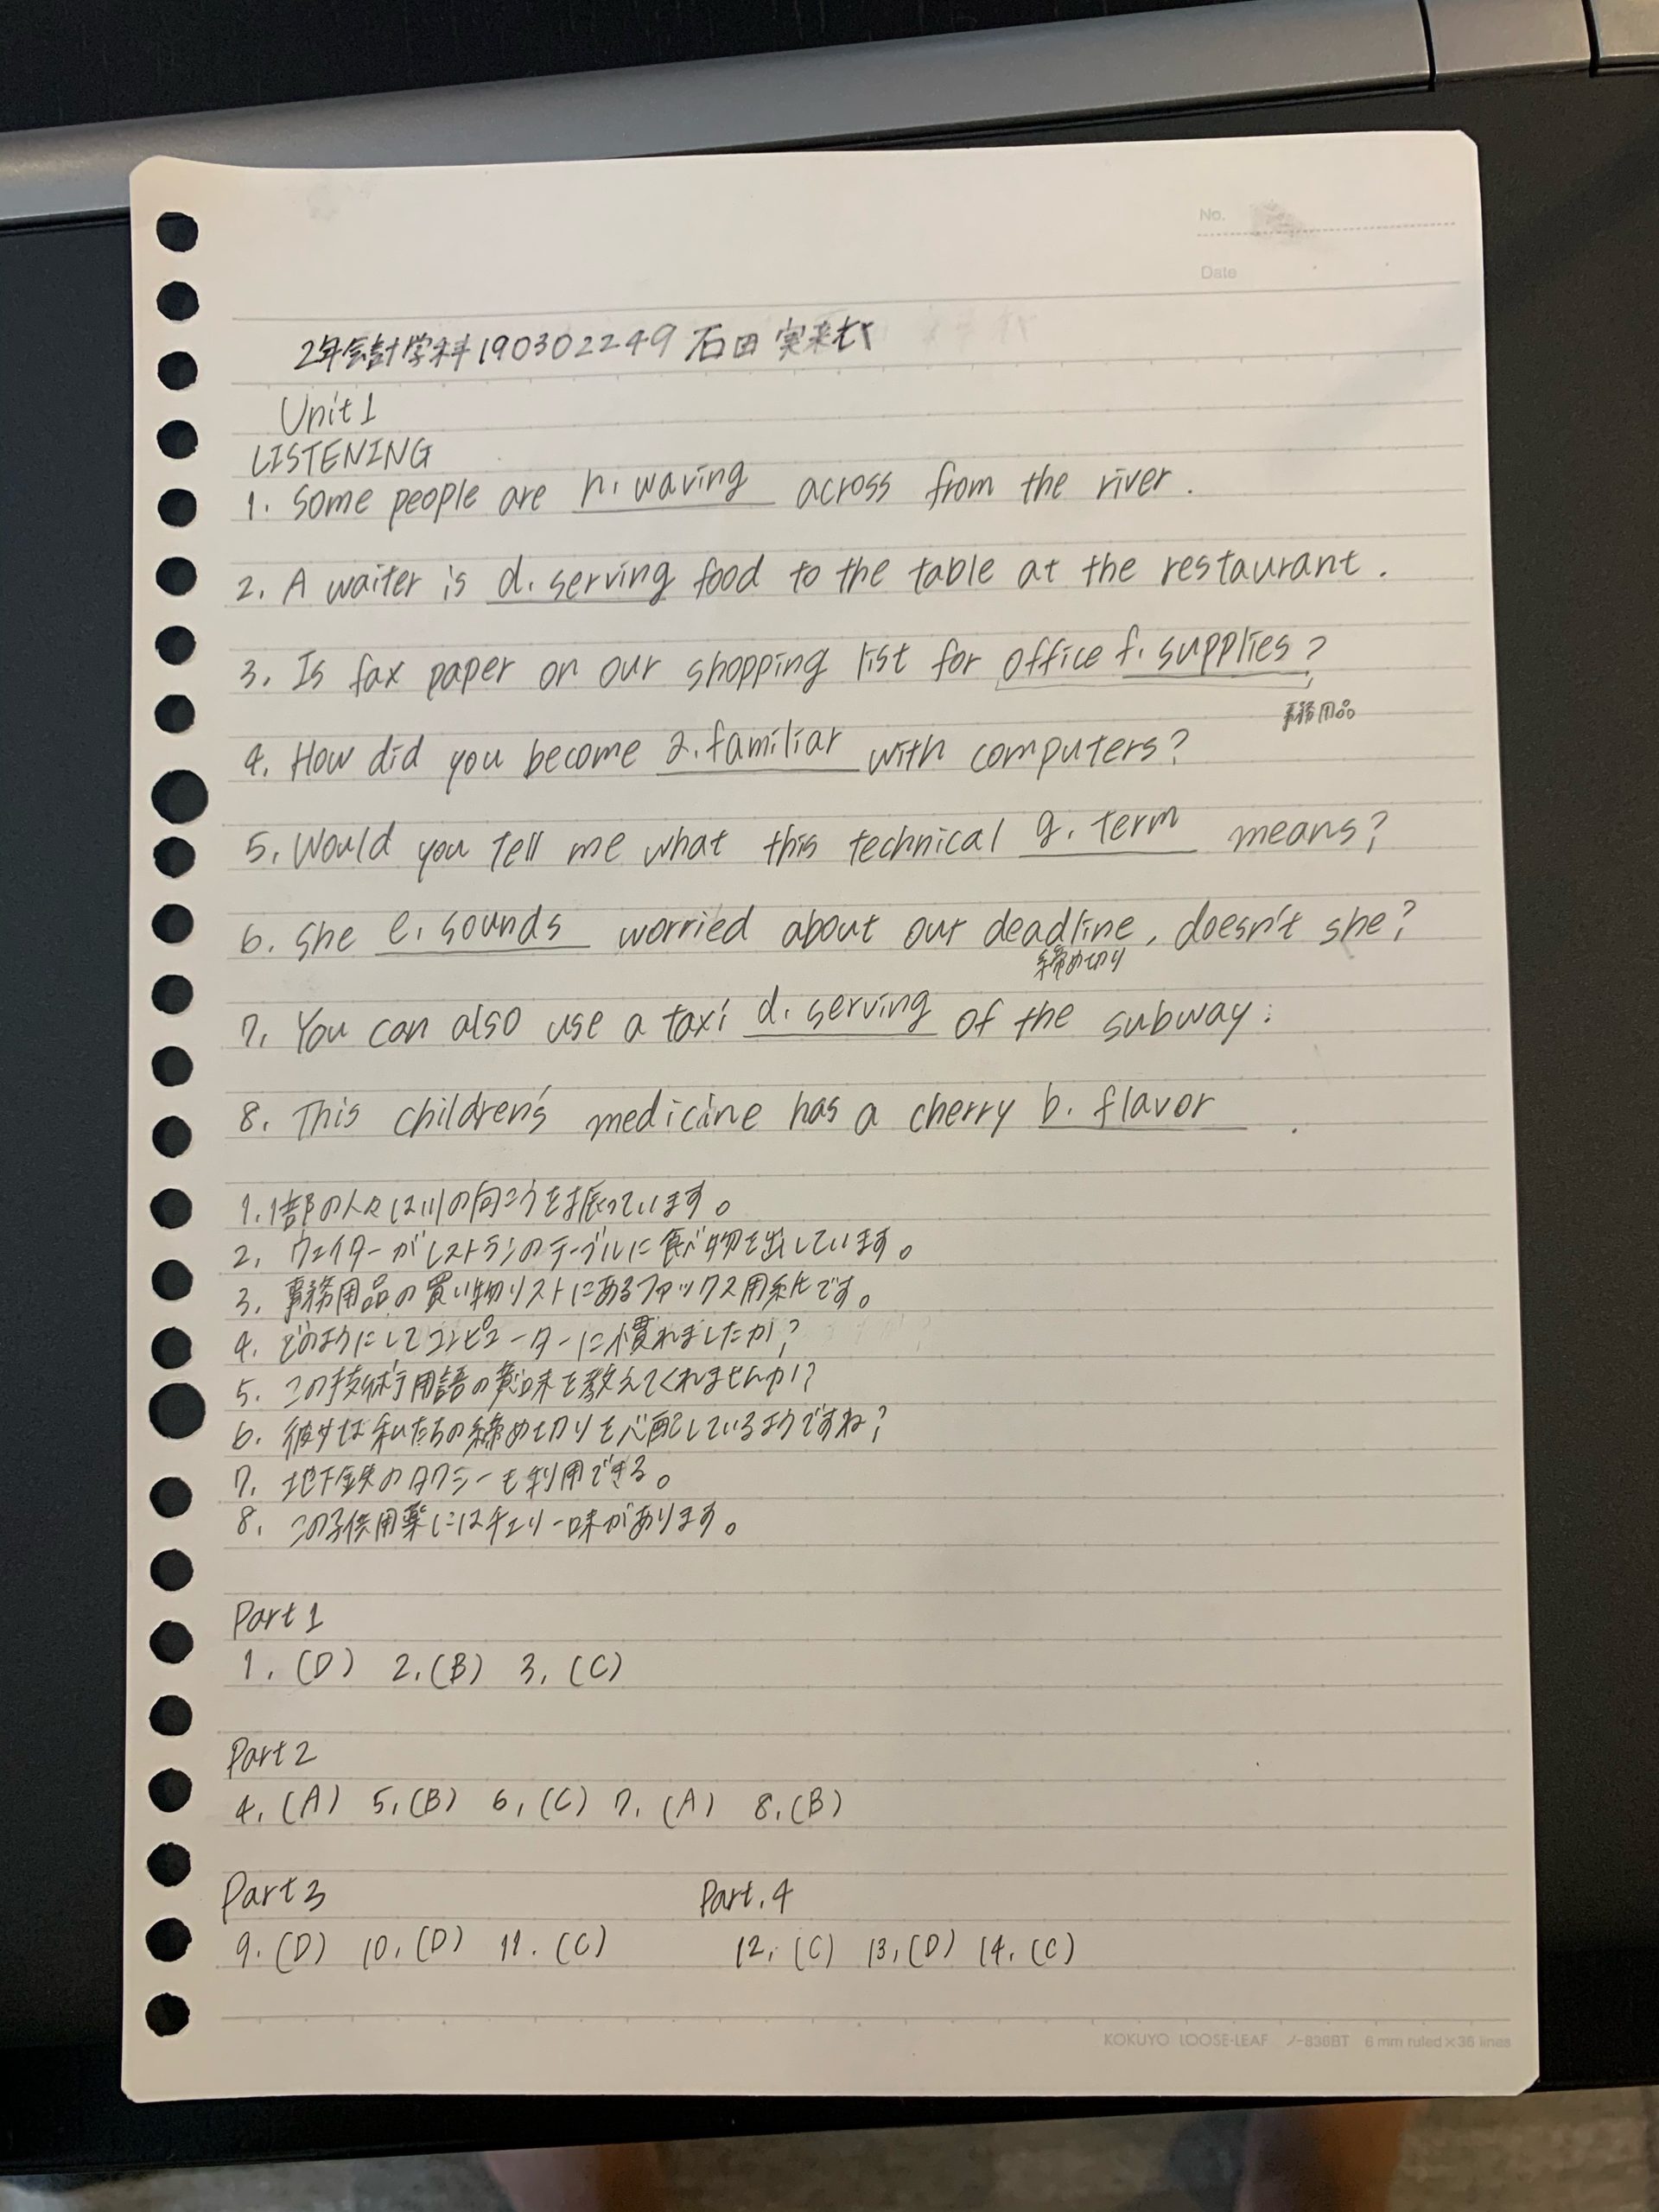 No.
Date
2年会計学科190302249 石田 実
Unit 1
LISTENING
1. Some people are h. waving across from the river.
2. A waiter is d. serving food to the table at the restaurant.
3. Is fax paper on our shopping list for office f. supplies?
事務用品
4. How did you become a. familiar with computers?
5. Would you tell me what this technical g. term means?
6. She e. sounds worried about our deadline, doesn't she?
締め切り
7. You can also use a taxi d. serving of the subway.
8. This children's medicine has a cherry b. flavor .
1. 1部の人々は川の向こうを振っています。
2. ウェイターがレストランのテーブルに食べ物を出しています。
3. 事務用品の買い物リストにあるファックス用紙です。
4. どのようにしてコンピューターに慣れましたか?
5. この技術用語の意味を教えてくれませんか?
6. 彼女は私たちの締め切りを心配しているようですね?
7. 地下鉄のタクシーも利用できる。
8. この子供用薬にはチェリー味があります。
Part 1
1. (D) 2. (B) 3. (C)
Part 2
4. (A) 5. (B) 6. (C) 7. (A) 8. (B)
Part 3 Part. 4
9. (D) 10. (D) 11. (C) 12. (C) 13. (D) 14. (C)
KOKUYO LOOSE-LEAF ノ-836BT 6 mm ruled×36 lines